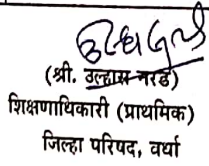 (श्री. उल्हास नरड)
शिक्षणाधिकारी (प्राथमिक)
जिल्हा परिषद, वर्धा